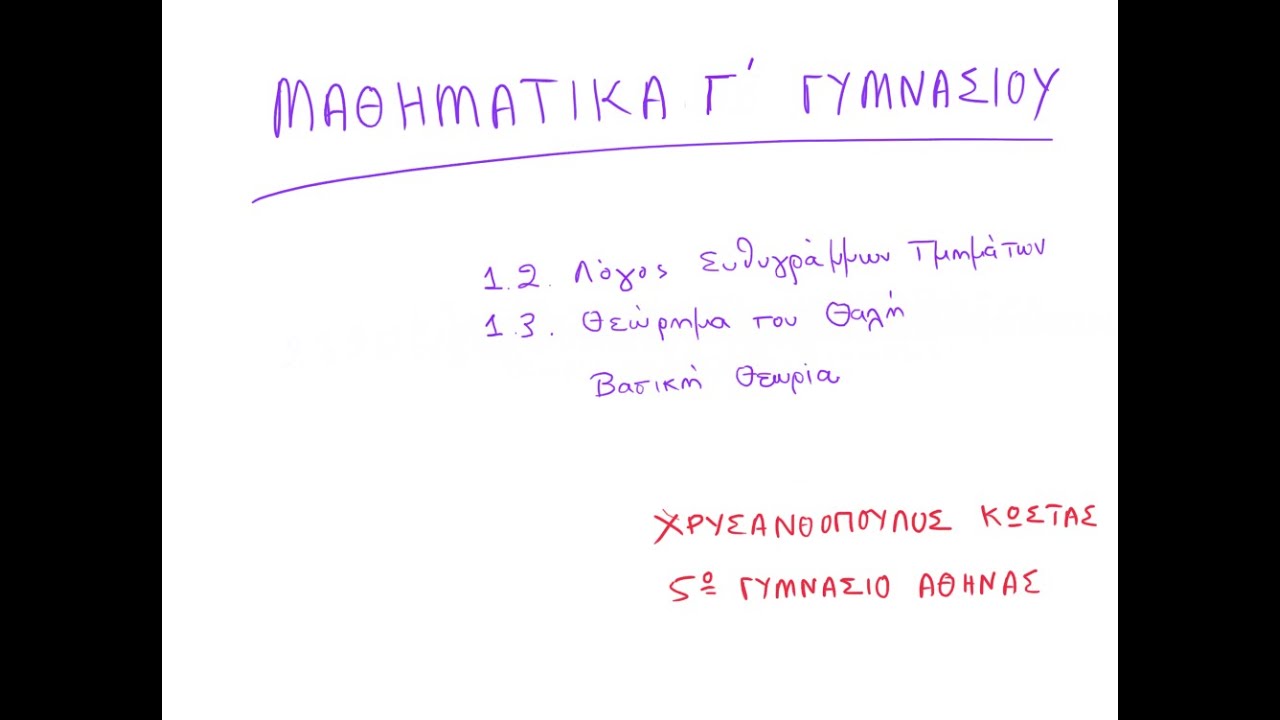 ΜΑΘΗΜΑΤΙΚΑ Γ' ΓΥΜΝΑΣΙΟΥ
1.2. Λόγος Ευθυγράμμων Τμημάτων
1.3. Θεώρημα του Θαλή
Βασική Θεωρία
ΧΡΥΣΑΝΘΟΠΟΥΛΟΣ ΚΩΣΤΑΣ
5ο ΓΥΜΝΑΣΙΟ ΑΘΗΝΑΣ